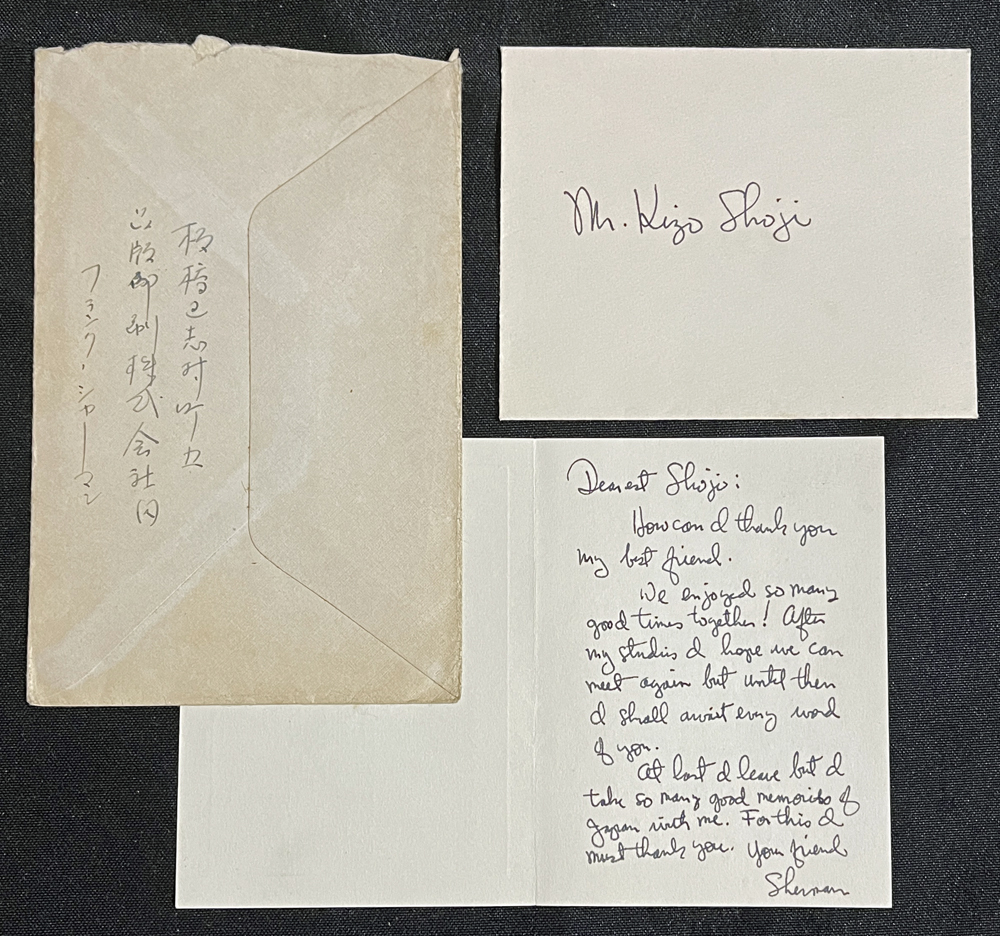 板橋区志村町五
凸版印刷株式会社内
フランク・シャーマン
Mr. Kizo Shoji
Dearest Shojo:
How can I thank you
my best friend.
We enjoyed so many
good times together! After
my studies I hope we can
meet again but until then
I shall await every word
of you.
At last I leave but I
take so many good memories of
Japan with me. For this I
must thank you. Your friend
Sherman